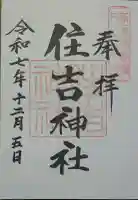 奉拝
住吉神社
令和七年十二月五日